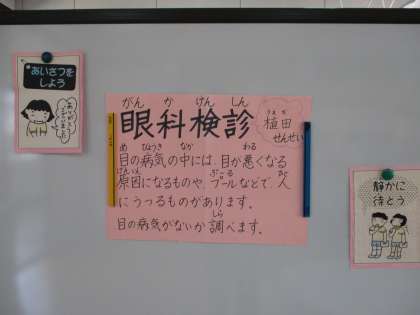 "あいさつを
しよう
がん か けん しん
眼科検診
うえ だ
植田
せんせい
め びょうき なか わる
目の病気の中には、目が悪くなる
げんいん ぷーる ひと
原因になるものや、プールなどで、人
にうつるものがあります。
しら
目の病気がないか調べます。
静かに
待とう